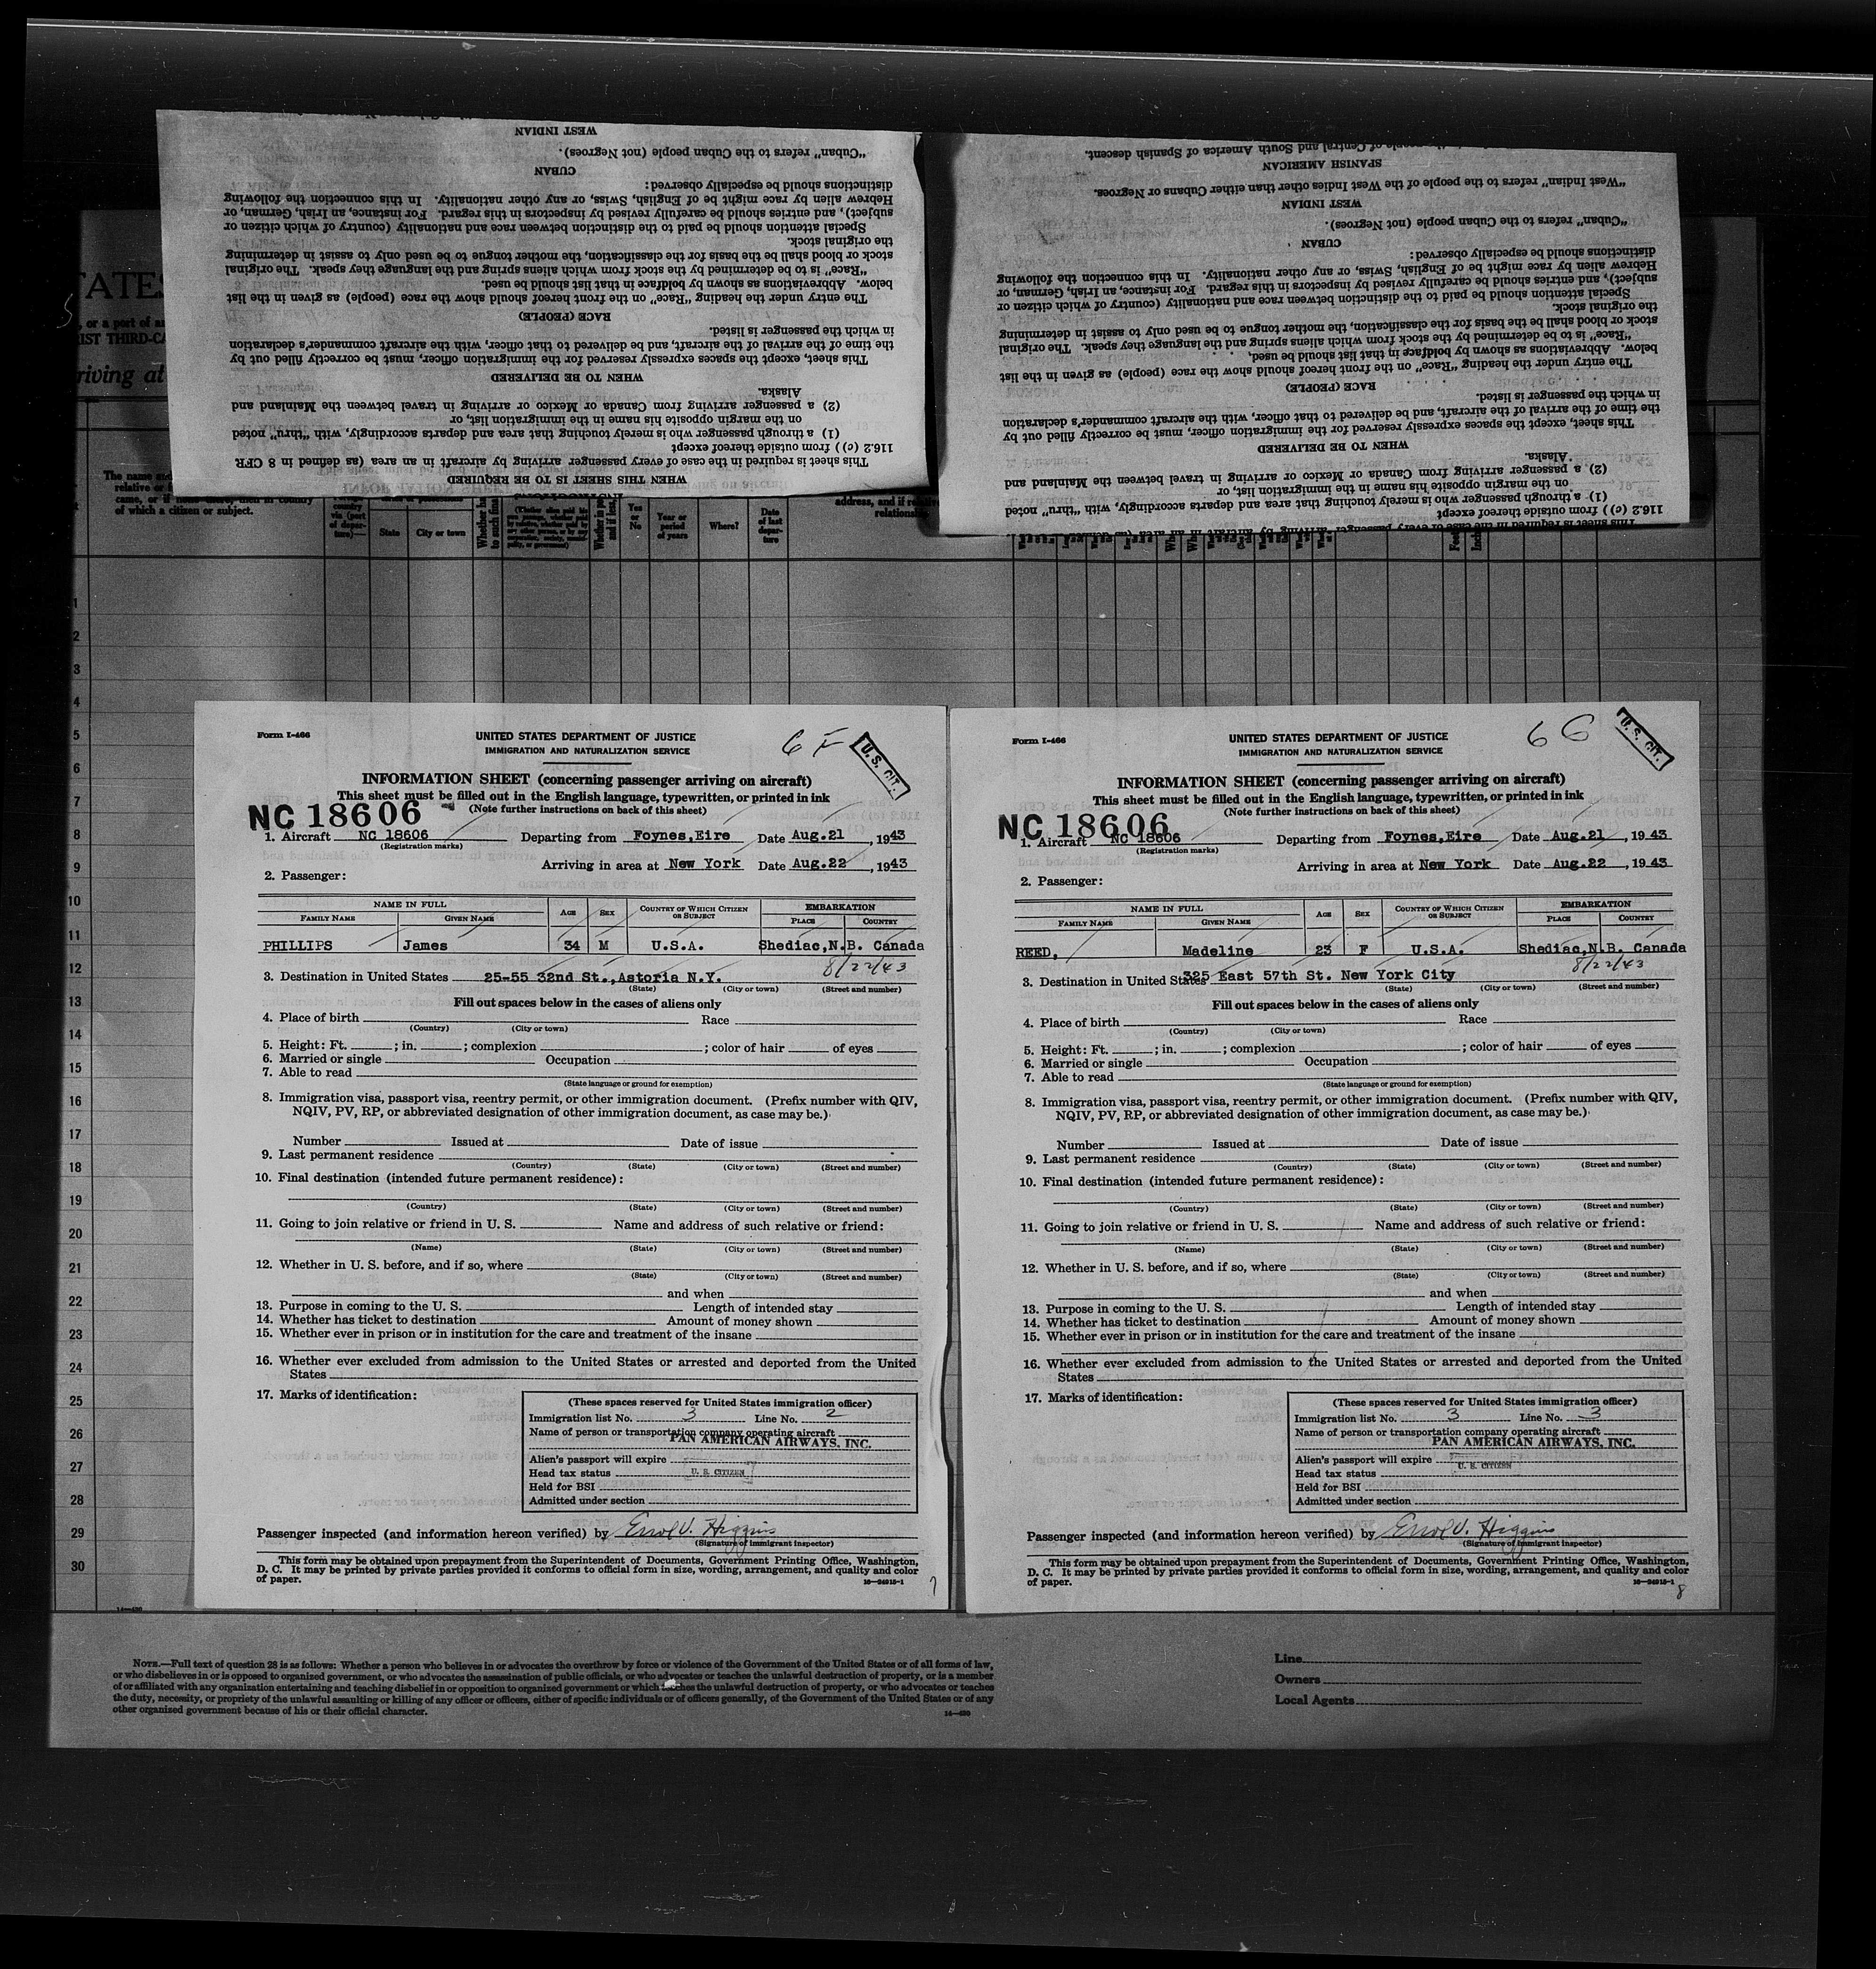 WEST INDIAN
“Cuban” refers to the Cuban people (not Negroes).
CUBAN
distinctions should be especially observed:
Hebrew alien by race might be of English, Swiss, or any other nationality. In this connection the following
subject), and entries should be carefully revised by inspectors in this regard. For instance, an Irish, German, or
Special attention should be paid to the distinction between race and nationality (country of which citizen or
the original stock.
stock or blood shall be the basis for the classification, the mother tongue to be used only to assist in determining
“Race” is to be determined by the stock from which aliens spring and the language they speak. The original
below. Abbreviations as shown by boldface in that list should be used.
The entry under the heading “Race” on the front hereof should show the race (people) as given in the list
RACE (PEOPLE)
in which the passenger is listed.
the time of the arrival of the aircraft, and be delivered to that officer, with the aircraft commander's declaration
This sheet, except the spaces expressly reserved for the immigration officer, must be correctly filled out by
WHEN TO BE DELIVERED
Alaska.
(2) a passenger arriving from Canada or Mexico or arriving in travel between the Mainland and
on the margin opposite his name in the immigration list, or
(1) a through passenger who is merely touching that area and departs accordingly, with “thru” noted
116.2 (c)) from outside thereof except
This sheet is required in the case of every passenger arriving by aircraft in an area (as defined in 8 CFR
WHEN THIS SHEET IS TO BE REQUIRED
people of Central and South America of Spanish descent.
SPANISH AMERICAN
“West Indian” refers to the people of the West Indies other than either Cubans or Negroes.
WEST INDIAN
“Cuban” refers to the Cuban people (not Negroes).
CUBAN
distinctions should be especially observed:
Hebrew alien by race might be of English, Swiss, or any other nationality. In this connection the following
subject), and entries should be carefully revised by inspectors in this regard. For instance, an Irish, German, or
Special attention should be paid to the distinction between race and nationality (country of which citizen or
the original stock.
stock or blood shall be the basis for the classification, the mother tongue to be used only to assist in determining
“Race” is to be determined by the stock from which aliens spring and the language they speak. The original
below. Abbreviations as shown by boldface in that list should be used.
The entry under the heading “Race” on the front hereof should show the race (people) as given in the list
RACE (PEOPLE)
in which the passenger is listed.
the time of the arrival of the aircraft, and be delivered to that officer, with the aircraft commander's declaration
This sheet, except the spaces expressly reserved for the immigration officer, must be correctly filled out by
WHEN TO BE DELIVERED
Alaska.
(2) a passenger arriving from Canada or Mexico or arriving in travel between the Mainland and
on the margin opposite his name in the immigration list, or
(1) a through passenger who is merely touching that area and departs accordingly, with “thru” noted
116.2 (c)) from outside thereof except
This sheet is required in the case of every passenger arriving by aircraft in an area
ATES
, or a part of an
RIST THIRD-CA
riving at
The name and
relative or f
came, or if none there, then in country
of which a citizen or subject.
country
via (port
of depar-
ture)
State
City or town
Yes
or
No
Year or
period
of years
Where?
Date
of last
depar-
ture
address, and if relative
relationship
1
2
3
4
5
6
7
8
9
10
11
12
13
14
15
16
17
18
19
20
21
22
23
24
25
26
27
28
29
30
Form I-466
UNITED STATES DEPARTMENT OF JUSTICE
IMMIGRATION AND NATURALIZATION SERVICE
6 F
U.S. CIT.
INFORMATION SHEET (concerning passenger arriving on aircraft)
This sheet must be filled out in the English language, typewritten, or printed in ink
(Note further instructions on back of this sheet)
NC 18606
1. Aircraft NC 18606 Departing from Foynes,Eire Date Aug.21, 1943
(Registration marks)
Arriving in area at New York Date Aug.22, 1943
2. Passenger:
NAME IN FULL AGE SEX COUNTRY OF WHICH CITIZEN OR SUBJECT EMBARKATION
FAMILY NAME GIVEN NAME PLACE COUNTRY
PHILLIPS James 34 M U.S.A. Shediac,N.B. Canada
8/22/43
3. Destination in United States 25-55 32nd St.,Astoria N.Y.
(State) (City or town) (Street and number)
Fill out spaces below in the cases of aliens only
4. Place of birth Race
(Country) (City or town)
5. Height: Ft. ; in. ; complexion ; color of hair of eyes
6. Married or single Occupation
7. Able to read
(State language or ground for exemption)
8. Immigration visa, passport visa, reentry permit, or other immigration document. (Prefix number with QIV,
NQIV, PV, RP, or abbreviated designation of other immigration document, as case may be.)
Number Issued at Date of issue
9. Last permanent residence
(Country) (State) (City or town) (Street and number)
10. Final destination (intended future permanent residence):
(Country) (State) (City or town) (Street and number)
11. Going to join relative or friend in U. S. Name and address of such relative or friend:
(Name) (State) (City or town) (Street and number)
12. Whether in U. S. before, and if so, where
(State) (City or town) (Street and number)
and when
13. Purpose in coming to the U. S. Length of intended stay
14. Whether has ticket to destination Amount of money shown
15. Whether ever in prison or in institution for the care and treatment of the insane
16. Whether ever excluded from admission to the United States or arrested and deported from the United
States
17. Marks of identification:
(These spaces reserved for United States immigration officer)
Immigration list No. 3 Line No. 2
Name of person or transportation company operating aircraft
PAN AMERICAN AIRWAYS, INC.
Alien's passport will expire
Head tax status U. S. CITIZEN
Held for BSI
Admitted under section
Passenger inspected (and information hereon verified) by Errol V. Higgins
(Signature of immigrant inspector)
This form may be obtained upon prepayment from the Superintendent of Documents, Government Printing Office, Washington,
D. C. It may be printed by private parties provided it conforms to official form in size, wording, arrangement, and quality and color
of paper.
16—24915-1
7
Form I-466
UNITED STATES DEPARTMENT OF JUSTICE
IMMIGRATION AND NATURALIZATION SERVICE
6 G
U.S. CIT.
INFORMATION SHEET (concerning passenger arriving on aircraft)
This sheet must be filled out in the English language, typewritten, or printed in ink
(Note further instructions on back of this sheet)
NC 18606
1. Aircraft NC 18606 Departing from Foynes,Eire Date Aug.21, 1943
(Registration marks)
Arriving in area at New York Date Aug.22, 1943
2. Passenger:
NAME IN FULL AGE SEX COUNTRY OF WHICH CITIZEN OR SUBJECT EMBARKATION
FAMILY NAME GIVEN NAME PLACE COUNTRY
REED, Madeline 23 F U.S.A. Shediac,N.B. Canada
8/22/43
3. Destination in United States 325 East 57th St. New York City
(State) (City or town) (Street and number)
Fill out spaces below in the cases of aliens only
4. Place of birth Race
(Country) (City or town)
5. Height: Ft. ; in. ; complexion ; color of hair of eyes
6. Married or single Occupation
7. Able to read
(State language or ground for exemption)
8. Immigration visa, passport visa, reentry permit, or other immigration document. (Prefix number with QIV,
NQIV, PV, RP, or abbreviated designation of other immigration document, as case may be.)
Number Issued at Date of issue
9. Last permanent residence
(Country) (State) (City or town) (Street and number)
10. Final destination (intended future permanent residence):
(Country) (State) (City or town) (Street and number)
11. Going to join relative or friend in U. S. Name and address of such relative or friend:
(Name) (State) (City or town) (Street and number)
12. Whether in U. S. before, and if so, where
(State) (City or town) (Street and number)
and when
13. Purpose in coming to the U. S. Length of intended stay
14. Whether has ticket to destination Amount of money shown
15. Whether ever in prison or in institution for the care and treatment of the insane
16. Whether ever excluded from admission to the United States or arrested and deported from the United
States
17. Marks of identification:
(These spaces reserved for United States immigration officer)
Immigration list No. 3 Line No. 3
Name of person or transportation company operating aircraft
PAN AMERICAN AIRWAYS, INC.
Alien's passport will expire
U. S. CITIZEN
Head tax status
Held for BSI
Admitted under section
Passenger inspected (and information hereon verified) by Errol V. Higgins
(Signature of immigrant inspector)
This form may be obtained upon prepayment from the Superintendent of Documents, Government Printing Office, Washington,
D. C. It may be printed by private parties provided it conforms to official form in size, wording, arrangement, and quality and color
of paper.
16—24915-1
8
NOTE.—Full text of question 28 is as follows: Whether a person who believes in or advocates the overthrow by force or violence of the Government of the United States or of all forms of law,
or who disbelieves in or is opposed to organized government, or who advocates the assassination of public officials, or who advocates or teaches the unlawful destruction of property, or is a member
of or affiliated with any organization entertaining and teaching disbelief in or opposition to organized government or which teaches the unlawful destruction of property, or who advocates or teaches
the duty, necessity, or propriety of the unlawful assaulting or killing of any officer or officers, either of specific individuals or of officers generally, of the Government of the United States or of any
other organized government because of his or their official character.
14—430
Line
Owners
Local Agents